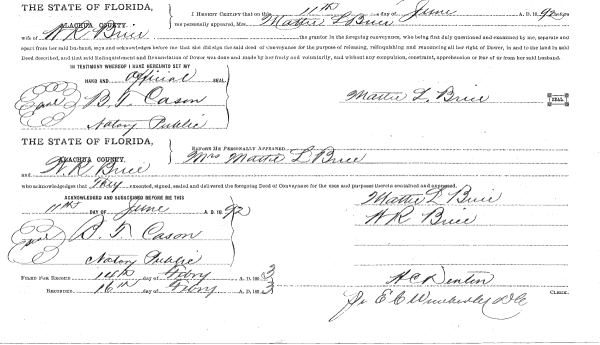 THE STATE OF FLORIDA,
ALACHUA COUNTY.
I HEREBY CERTIFY that on this 11th day of June A. D. 1892 before
me personally appeared, Mrs. Mattie L Brice
wife of W. R. Brice the grantor in the foregoing conveyance, who being first duly questioned and examined by me, separate and
apart from her said husband, says and acknowledges before me that she did sign the said deed of conveyance for the purpose of releasing, relinquishing and renouncing all her right of Dower, in and to the land in said
Deed described, and that said Relinquishment and Renunciation of Dower was done and made by her freely and voluntarily, and without any compulsion, constraint, apprehension or fear of or from her said husband.
IN TESTIMONY WHEREOF I HAVE HEREUNTO SET MY
HAND AND official SEAL
Seal B. F. Cason
Notary Public
Mattie L. Brice SEAL
THE STATE OF FLORIDA,
ALACHUA COUNTY.
BEFORE ME PERSONALLY APPEARED Mrs Mattie L Brice
and W. R Brice
who acknowledges that They executed, signed, sealed and delivered the foregoing Deed of Conveyance for the uses and purposes therein contained and expressed.
ACKNOWLEDGED AND SUBSCRIBED BEFORE ME THIS
11th DAY OF June A. D. 1892
Mattie L Brice
W R Brice
Seal B. F. Cason
Notary Public
FILED FOR RECORD 14th day of Feby A. D. 1893
RECORDED 16th day of Feby A. D. 1893
H C Denton CLERK.
Pr E C Wimberley DC